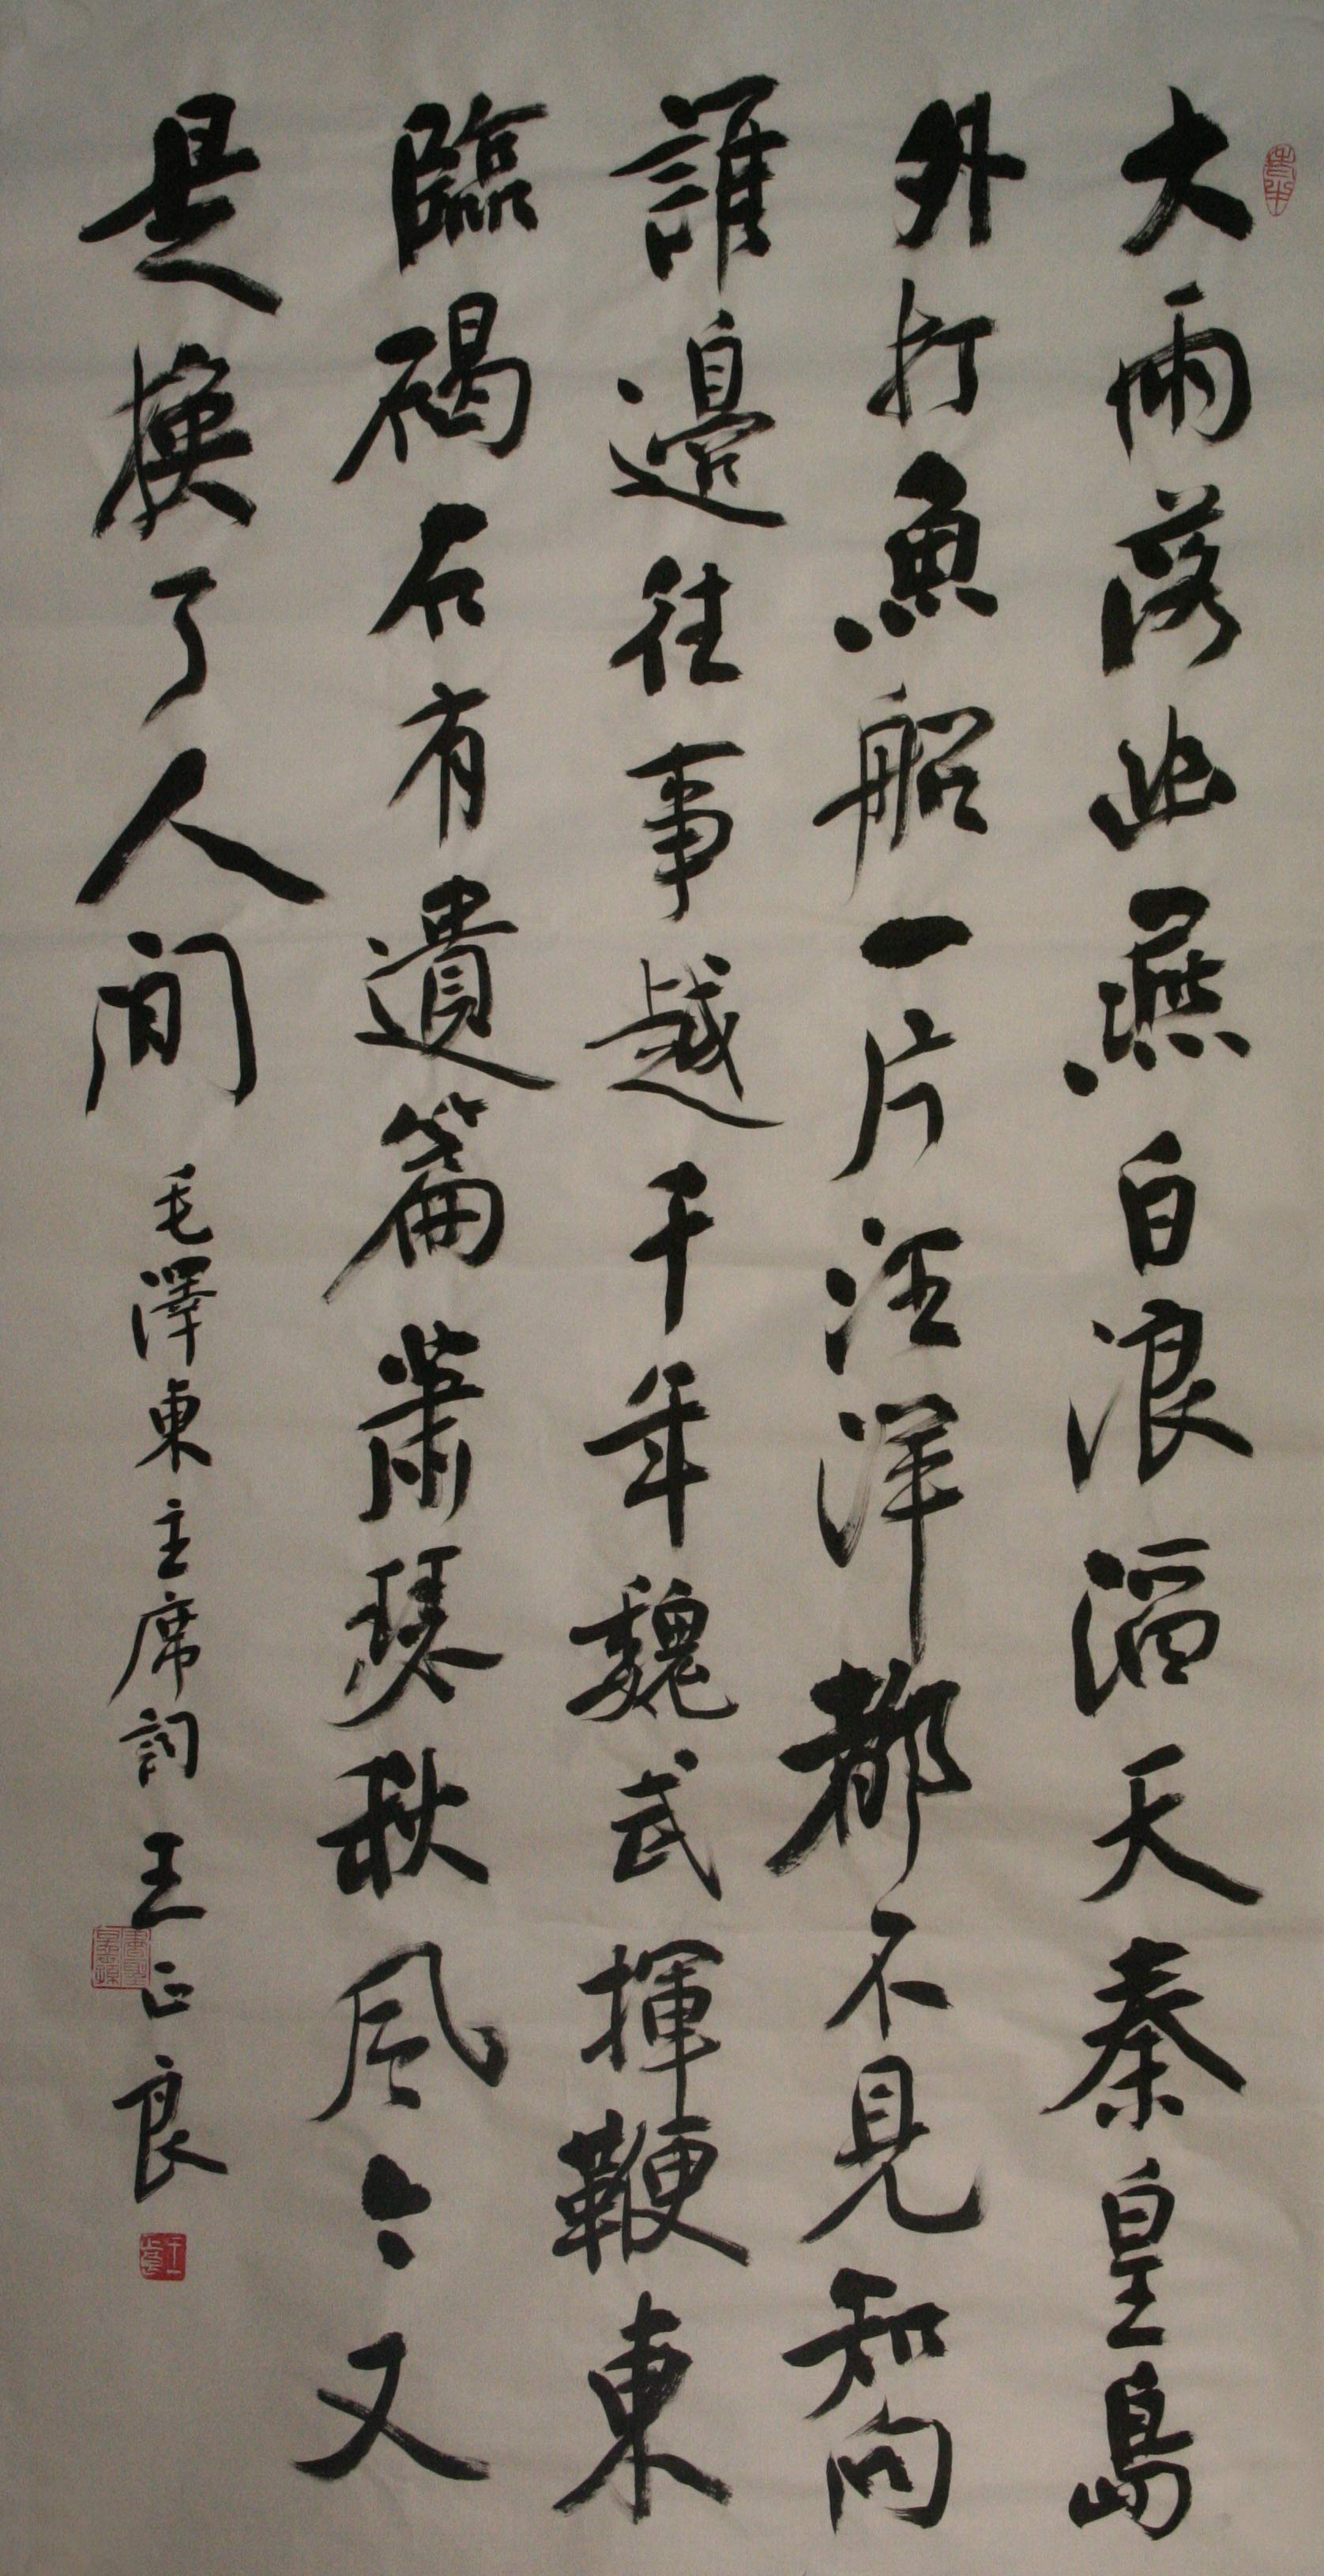 大雨落幽燕白浪滔天秦皇島
外打魚船一片汪洋都不見知向
誰邊往事越千年魏武揮鞭東
臨碣石有遺篇蕭瑟秋風今又
是換了人間
毛澤東主席詞王正良